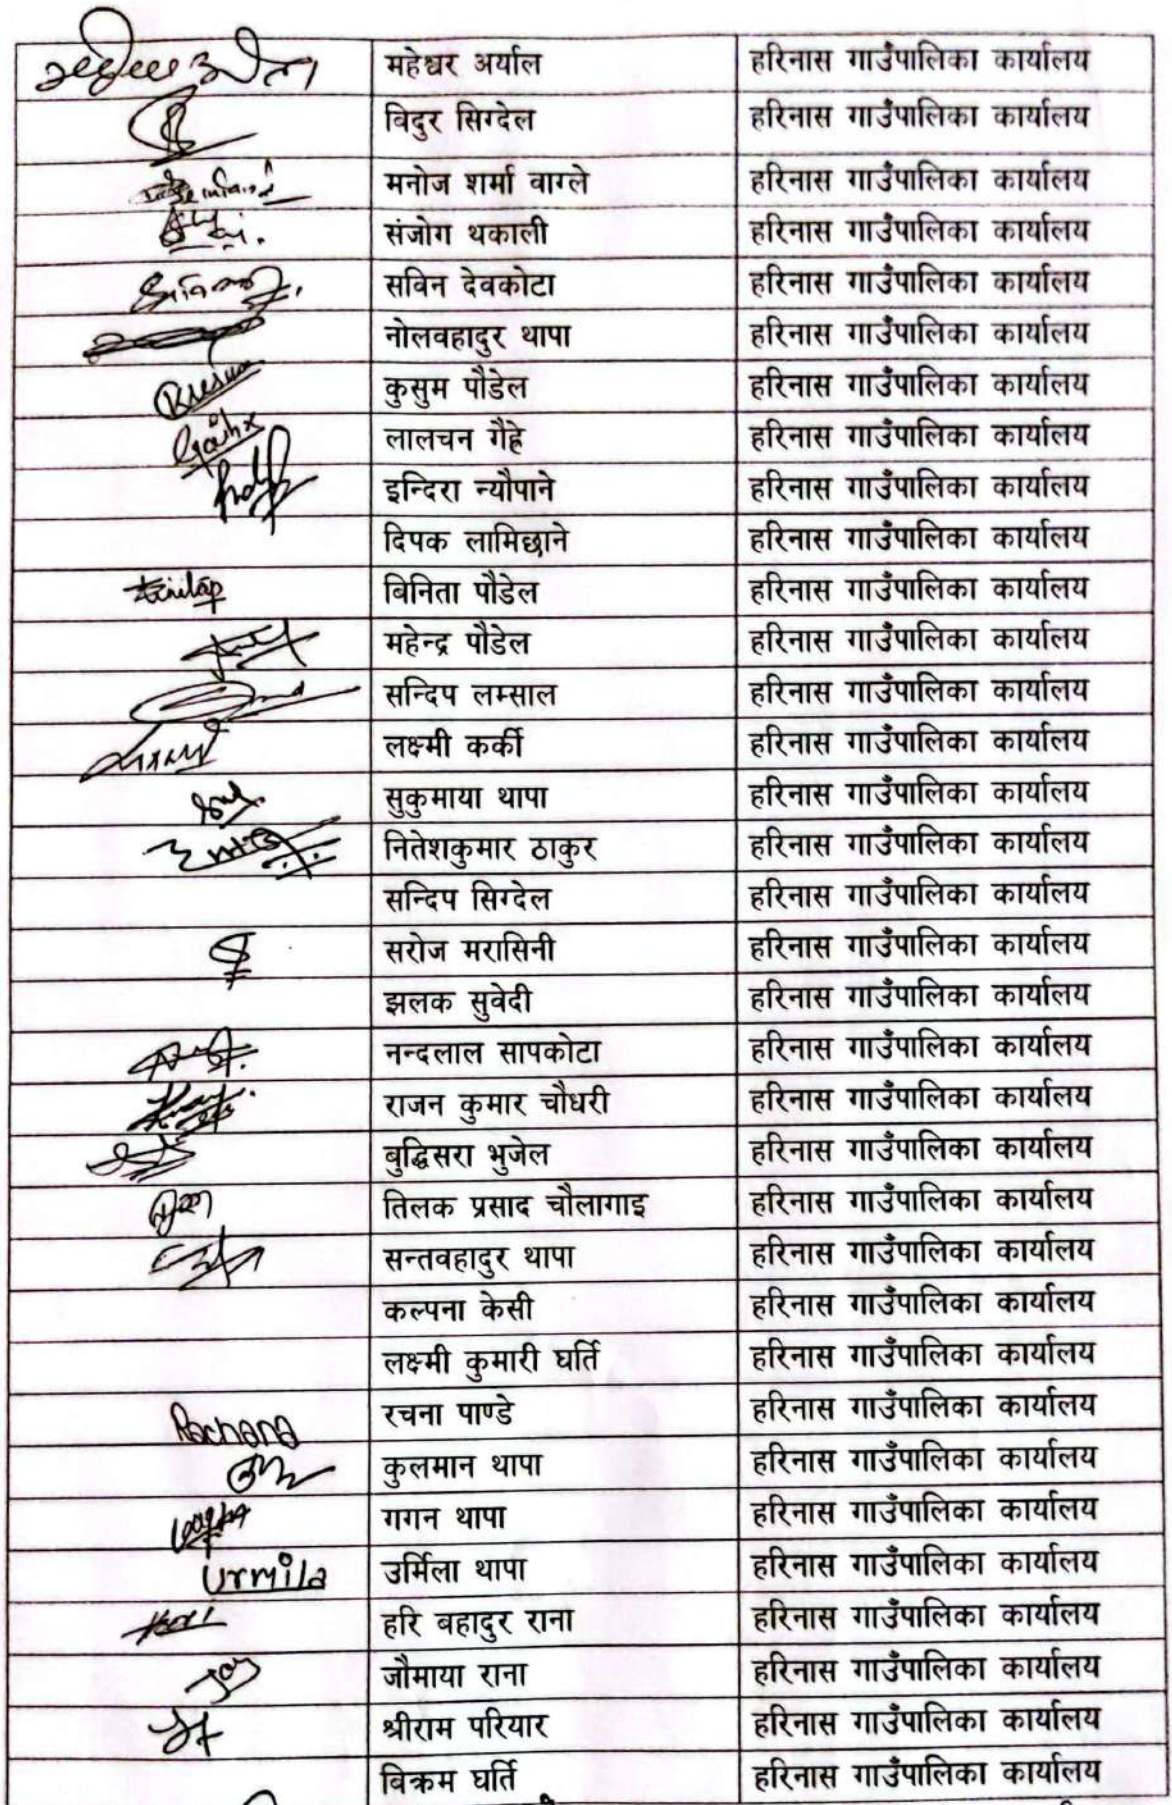 महेश्वर अर्याल हरिनास गाउँपालिका कार्यालय
विदुर सिग्देल हरिनास गाउँपालिका कार्यालय
मनोज शर्मा वाग्ले हरिनास गाउँपालिका कार्यालय
संजोग थकाली हरिनास गाउँपालिका कार्यालय
सविन देवकोटा हरिनास गाउँपालिका कार्यालय
नोलवहादुर थापा हरिनास गाउँपालिका कार्यालय
कुसुम पौडेल हरिनास गाउँपालिका कार्यालय
लालचन गैह्रे हरिनास गाउँपालिका कार्यालय
इन्दिरा न्यौपाने हरिनास गाउँपालिका कार्यालय
दिपक लामिछाने हरिनास गाउँपालिका कार्यालय
बिनिता पौडेल हरिनास गाउँपालिका कार्यालय
महेन्द्र पौडेल हरिनास गाउँपालिका कार्यालय
सन्दिप लम्साल हरिनास गाउँपालिका कार्यालय
लक्ष्मी कर्की हरिनास गाउँपालिका कार्यालय
सुकुमाया थापा हरिनास गाउँपालिका कार्यालय
नितेशकुमार ठाकुर हरिनास गाउँपालिका कार्यालय
सन्दिप सिग्देल हरिनास गाउँपालिका कार्यालय
सरोज मरासिनी हरिनास गाउँपालिका कार्यालय
झलक सुवेदी हरिनास गाउँपालिका कार्यालय
नन्दलाल सापकोटा हरिनास गाउँपालिका कार्यालय
राजन कुमार चौधरी हरिनास गाउँपालिका कार्यालय
बुद्धिसरा भुजेल हरिनास गाउँपालिका कार्यालय
तिलक प्रसाद चौलागाइ हरिनास गाउँपालिका कार्यालय
सन्तवहादुर थापा हरिनास गाउँपालिका कार्यालय
कल्पना केसी हरिनास गाउँपालिका कार्यालय
लक्ष्मी कुमारी घर्ति हरिनास गाउँपालिका कार्यालय
Rachana रचना पाण्डे हरिनास गाउँपालिका कार्यालय
कुलमान थापा हरिनास गाउँपालिका कार्यालय
गगन थापा हरिनास गाउँपालिका कार्यालय
Urmila उर्मिला थापा हरिनास गाउँपालिका कार्यालय
हरि बहादुर राना हरिनास गाउँपालिका कार्यालय
जौमाया राना हरिनास गाउँपालिका कार्यालय
श्रीराम परियार हरिनास गाउँपालिका कार्यालय
बिक्रम घर्ति हरिनास गाउँपालिका कार्यालय